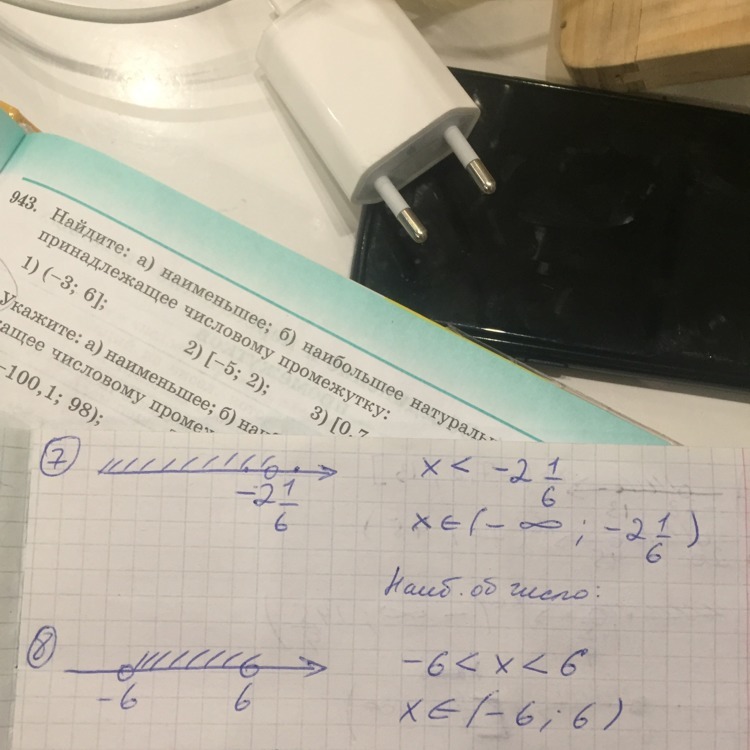 943. Найдите: а) наименьшее; б) наибольшее натураль
принадлежащее числовому промежутку:
1) (−3; 6];
2) [−5; 2);
3) [0,7
Укажите: а) наименьшее; б)
ащее числовому
−100,1; 98);
7
-2 1/6
x < -2 1/6
x ∈ (-∞; -2 1/6)
Наиб. об число:
8
-6
6
-6 < x < 6
x ∈ (-6; 6)